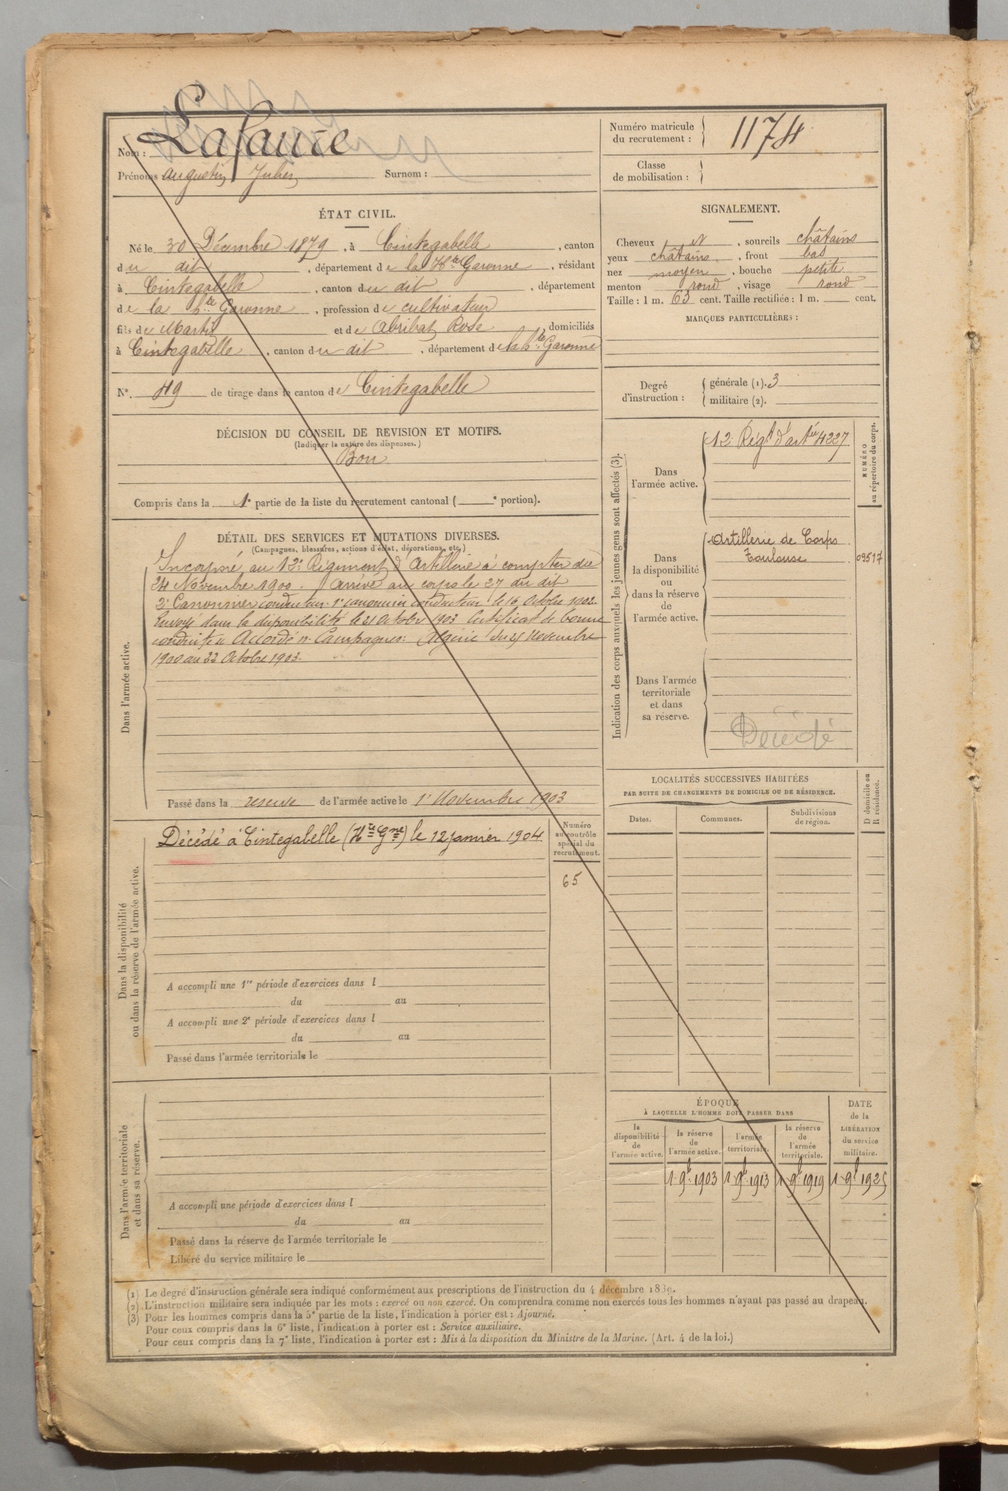 Nom : Lafaure
Prénoms : Augustin Jules Surnom :
Numéro matricule du recrutement : 1174
Classe de mobilisation :
ÉTAT CIVIL.
Né le 30 Décembre 1879, à Cintegabelle, canton
du dit, département de la Hte Garonne, résidant
à Cintegabelle, canton du dit, département
de la Hte Garonne, profession de cultivateur
fils de Martin et de Abribat Rose, domiciliés
à Cintegabelle, canton du dit, département de la Hte Garonne
N° 49 de tirage dans le canton de Cintegabelle
DÉCISION DU CONSEIL DE REVISION ET MOTIFS.
(Indiquer la nature des dispenses.)
Bon
Compris dans la 1e partie de la liste du recrutement cantonal ( e portion).
SIGNALEMENT.
Cheveux et, sourcils châtains
yeux châtains, front bas
nez moyen, bouche petite
menton rond, visage rond
Taille : 1 m. 63 cent. Taille rectifiée : 1 m. cent.
MARQUES PARTICULIÈRES :
Degré d'instruction : générale (1). 3
militaire (2).
DÉTAIL DES SERVICES ET MUTATIONS DIVERSES.
(Campagnes, blessures, actions d'éclat, décorations, etc.)
Dans l'armée active.
Incorporé au 12e Régiment d'Artillerie à compter du
24 Novembre 1900. Arrivé au corps le 27 du dit
2e Canonnier conducteur. 1er canonnier conducteur le 16 Octobre 1902.
Envoyé dans la disponibilité le 21 Octobre 1903 Certificat de bonne
conduite Accordé. Campagnes: Algérie du 25 Novembre
1900 au 22 Octobre 1903.
Passé dans la réserve de l'armée active le 1er Novembre 1903
Indication des corps auxquels les jeunes gens sont affectés (3).
NUMÉRO au répertoire du corps.
Dans l'armée active.
12 Régt d'artie 4227
Dans la disponibilité ou dans la réserve de l'armée active.
Artillerie de Corps
Toulouse 09517
Dans l'armée territoriale et dans sa réserve.
Décédé
Dans la disponibilité ou dans la réserve de l'armée active.
Décédé à Cintegabelle (Hte Gne) le 12 janvier 1904
Numéro au contrôle spécial du recrutement.
65
A accompli une 1re période d'exercices dans l
du au
A accompli une 2e période d'exercices dans l
du au
Passé dans l'armée territoriale le
LOCALITÉS SUCCESSIVES HABITÉES
PAR SUITE DE CHANGEMENTS DE DOMICILE OU DE RÉSIDENCE.
D domicile ou R résidence.
Dates. Communes. Subdivisions de région.
Dans l'armée territoriale et dans sa réserve.
A accompli une période d'exercices dans l
du au
Passé dans la réserve de l'armée territoriale le
Libéré du service militaire le
ÉPOQUE
À LAQUELLE L'HOMME DOIT PASSER DANS
DATE de la LIBÉRATION du service militaire.
la disponibilité de l'armée active. la réserve de l'armée active. l'armée territoriale. la réserve de l'armée territoriale.
1 9b 1903 1 9b 1913 1 9b 1919 1 9b 1925
(1) Le degré d'instruction générale sera indiqué conformément aux prescriptions de l'instruction du 4 décembre 1889.
(2) L'instruction militaire sera indiquée par les mots : exercé ou non exercé. On comprendra comme non exercés tous les hommes n'ayant pas passé au drapeau.
(3) Pour les hommes compris dans la 5e partie de la liste, l'indication à porter est : Ajourné.
Pour ceux compris dans la 6e liste, l'indication à porter est : Service auxiliaire.
Pour ceux compris dans la 7e liste, l'indication à porter est : Mis à la disposition du Ministre de la Marine. (Art. 4 de la loi.)